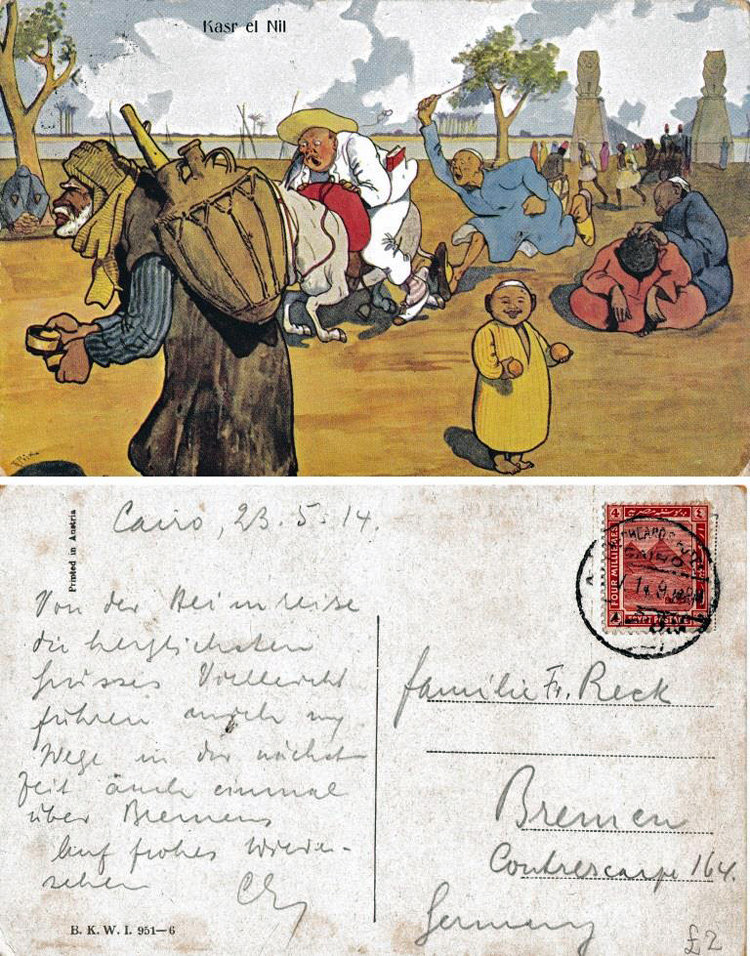 Kasr el Nil
Printed in Austria
Cairo, 23. 5. 14.
Von der Heimreise
die herzlichsten
Grüsse. Vielleicht
führen mich my
Wege in der nächst
Zeit auch einmal
über Bremen
Auf frohes Wieder-
sehen
B. K. W. I. 951—6
4 ٤
FOUR MILLIEMES
4
EGYPT POSTAGE
CAIRO
Familie Fr. Reck
Bremen
Contrescarpe 164.
Germany
£2